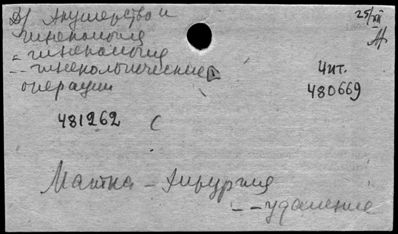 В) Акушерство и
гинекология
= гинекология
-- гинекологические
операции
25/XII
А
Чит.
480669
481262 С
Матка - хирургия
-- удаление